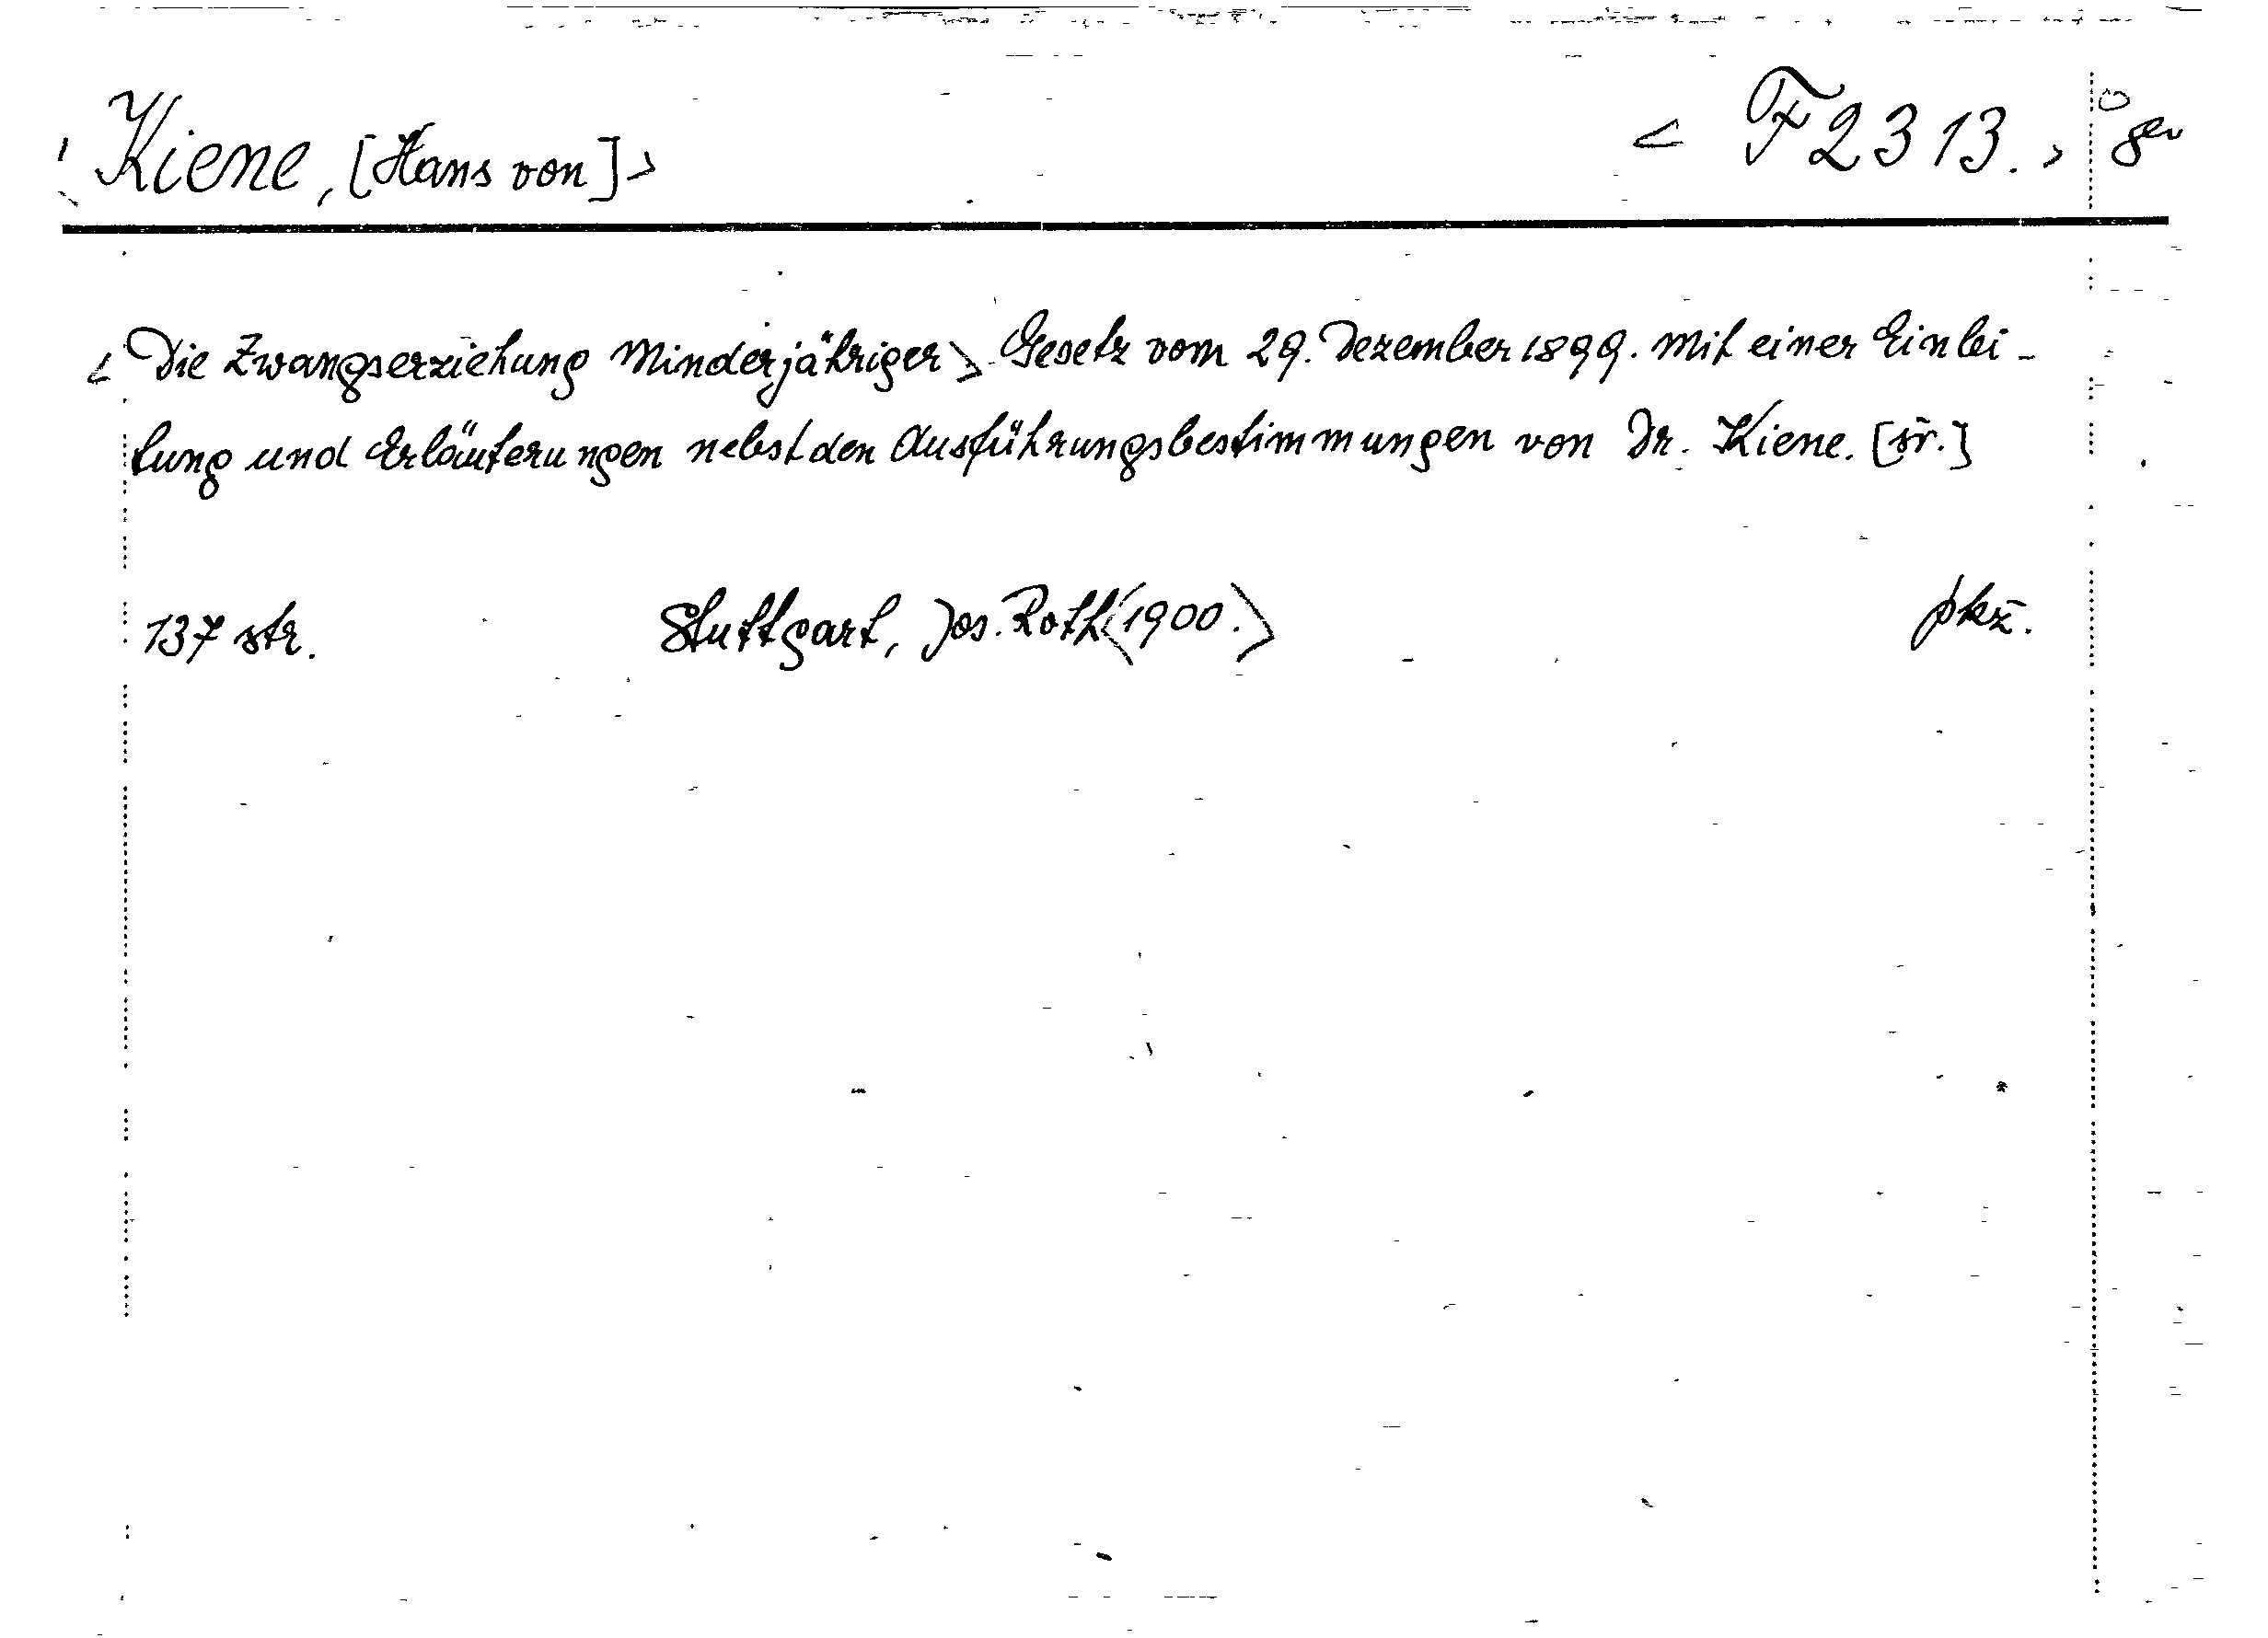 Kiene, [Hans von]> < F 2313. >
<Die Zwangserziehung Minderjähriger> Gesetz vom 29. Dezember 1899. Mit einer Einlei-
tung und Erläuterungen nebst den Ausführungsbestimmungen von Dr. Kiene. [sr.]
137 str. Stuttgart, Jos. Roth <1900.> pkž.